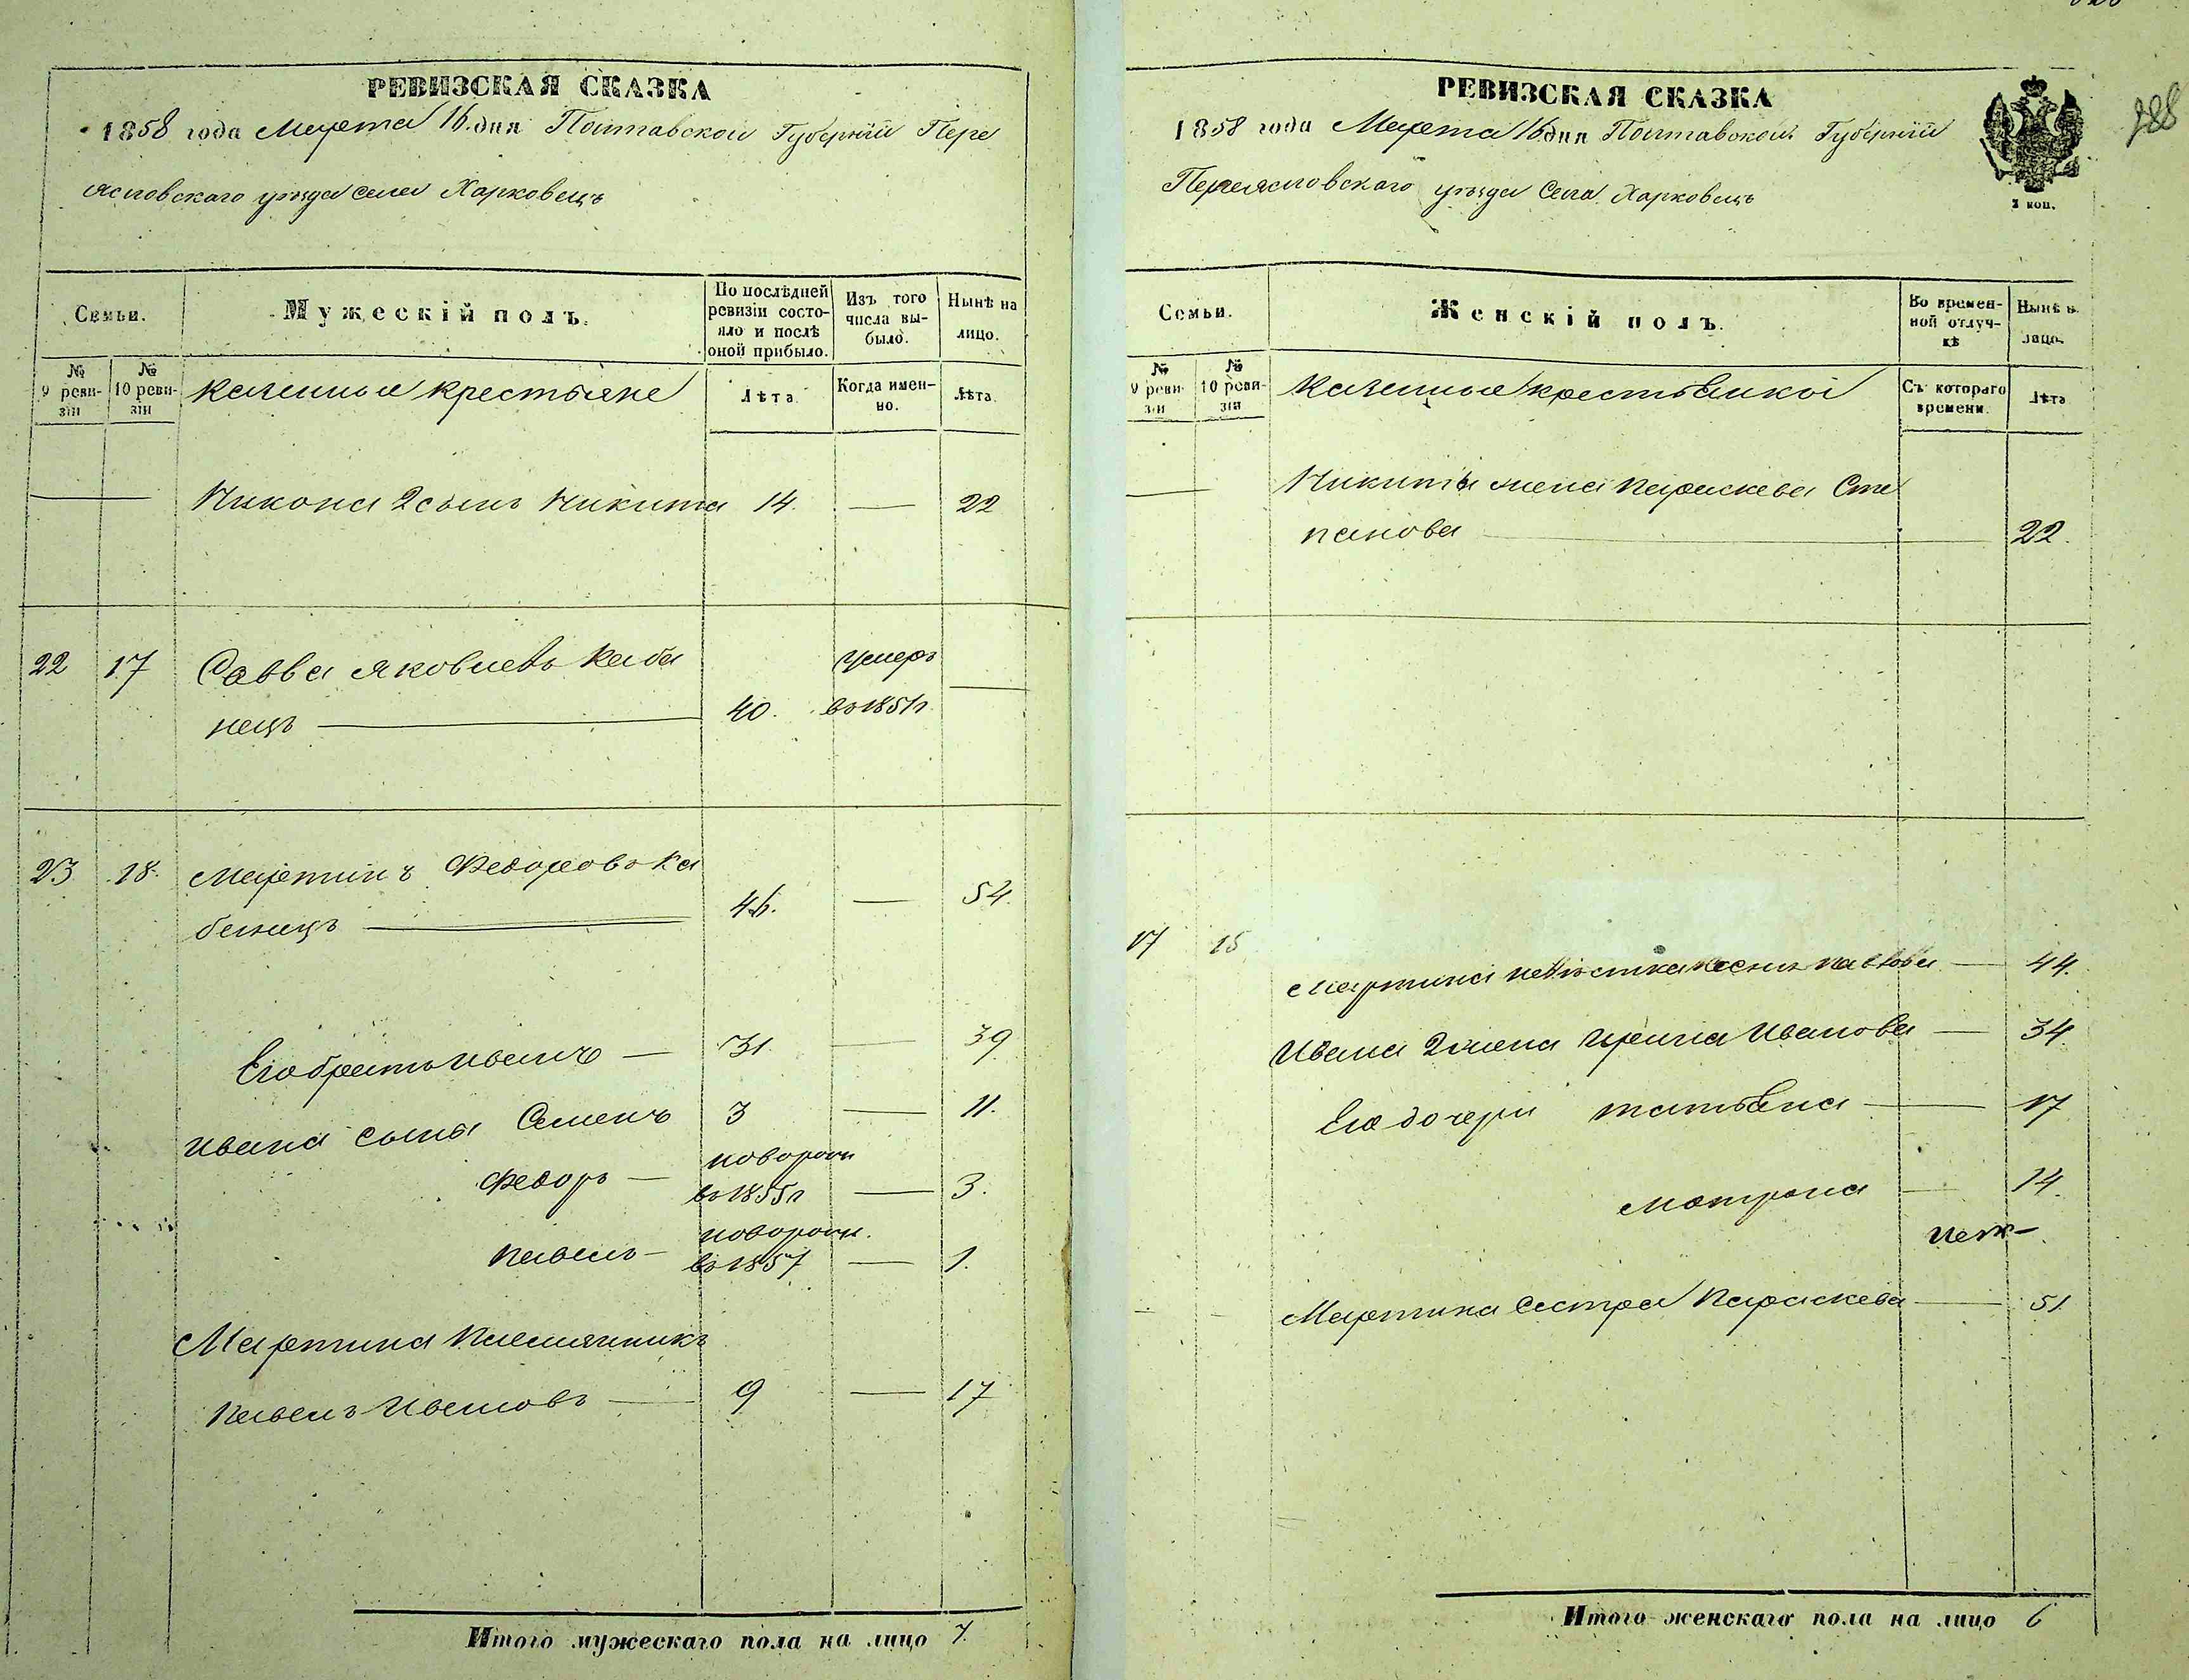 РЕВИЗСКАЯ СКАЗКА
1858 года Марта 16 дня Полтавской Губерніи Пере
яславскаго уѣзда села Харковецъ
Семьи.
Мужескій полъ.
По послѣдней ревизіи состояло и послѣ оной прибыло.
Изъ того числа выбыло.
Нынѣ на лицо.
№ 9 ревизіи
№ 10 ревизіи
Казенные крестьяне
Лѣта.
Когда именно.
Лѣта.
Никона 2 сынъ Никита 14. — 22
22 17 Савва Яковлевъ Каба
нецъ — 40. умеръ
въ 1851 г —
23 18. Мартинъ Федоровъ Ка
банецъ — 46. — 54.
Его братъ Иванъ — 31. — 39
Ивана сыны Семенъ 3 — 11.
новорожд
Федоръ — въ 1855 г — 3.
новорожд.
Павелъ — въ 1857 — 1.
Мартина племянникъ
Павелъ Ивановъ — 9 — 17
Итого мужескаго пола на лицо 7.
388
РЕВИЗСКАЯ СКАЗКА
1858 года Марта 16 дня Полтавской Губерніи
Переяславскаго уѣзда Села Харковецъ
3 коп.
Семьи.
Женскій полъ.
Во временной отлучкѣ
Нынѣ на лицо.
№ 9 ревизіи
№ 10 ревизіи
Казенные крестьянки
Съ котораго времени.
Лѣта
— Никиты жена Параскева Сте
панова — 22.
17 15
Мартина невѣстка Павлова — 44.
Ивана 2 жена Ирина Иванова — 34.
Его дочери Татьяна — 17
Мотрона — 14.
Мартина сестра Параскева — 51
Итого женскаго пола на лицо 6